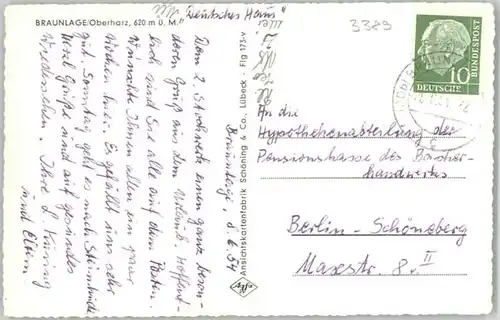 BRAUNLAGE/Oberharz, 620 m ü. M.
"Deutsches Haus"
3389
Braunlage, d. 6.54
Dem 2. Stockwerk einen ganz beson-
deren Gruß aus dem Urlaub. Hoffent-
lich sind Sie alle auf dem Posten.
Wünschte Ihnen allen ein paar
Wochen hier. Es gefällt uns sehr
gut. Sonntag geht es nach
Grüße und auf gesundes
Wiedersehen. Ihre
und Eltern
Ansichtskartenfabrik Schöning & Co., Lübeck - Flg 175 v
DEUTSCHE
BUNDESPOST
10
An die
Hypothekenabteilung der
Pensionskasse des Bäcker-
handwerks
Berlin-Schöneberg
Maxstr. 8. II